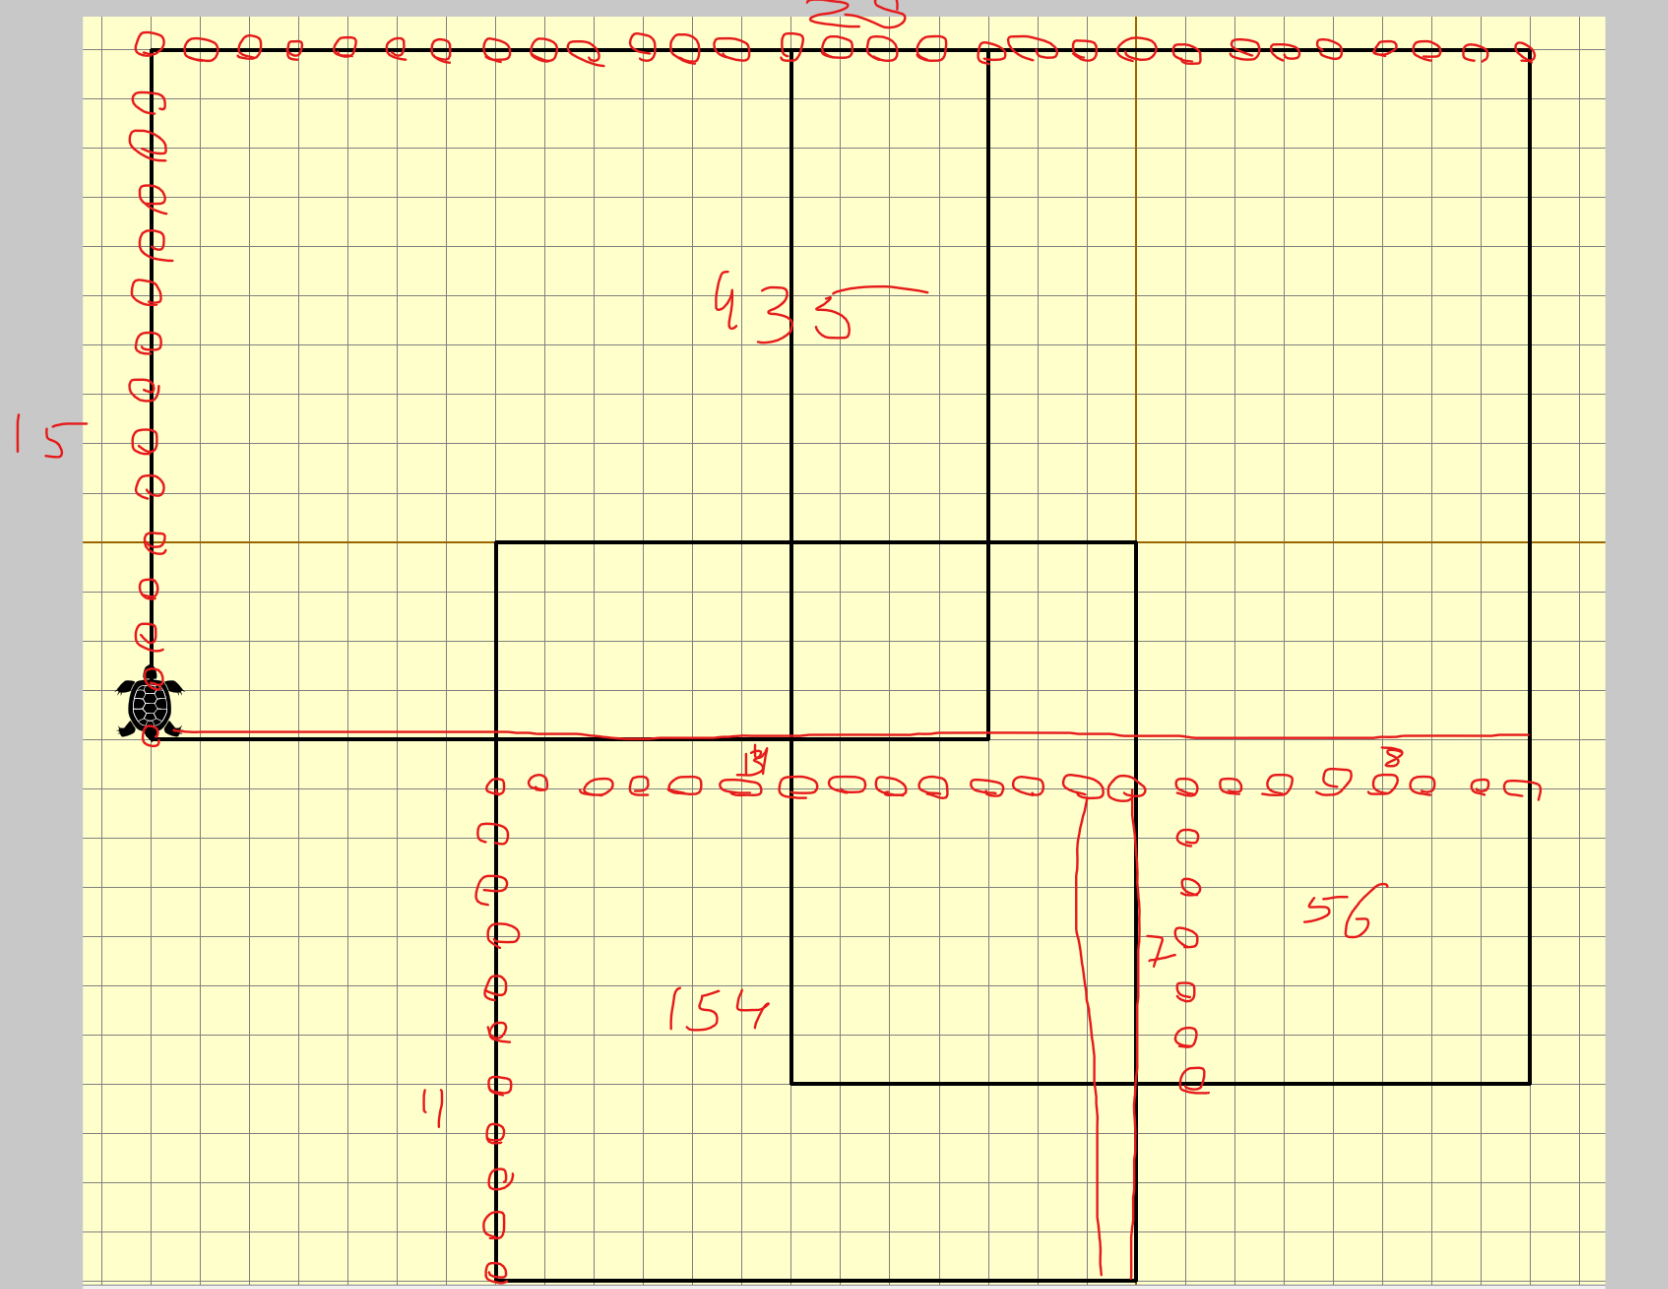 29
435
15
14
8
7
56
154
11